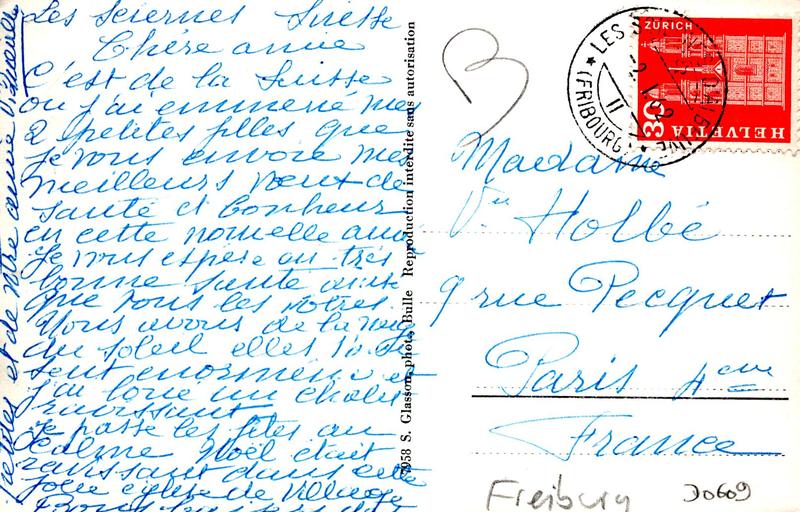 Les Sciernes Suisse
Chère amie
C'est de la Suisse
ou j'ai emmené mes
2 petites filles que
je vous envoie mes
meilleurs vœux de
santé et bonheur
en cette nouvelle année
Je vous espère en très
bonne santé ainsi
que tous les vôtres.
Nous avons de la neige
du soleil elles s'amu
sent énormément
j'ai loué un chalet
ravissant
je passe les fêtes au
calme Noël était
ravissant dans cette
jolie église de village
petites et de votre amie
7958 S. Glasson, photo, Bulle Reproduction interdite sans autorisation
B
LES SCIERNES
(FRIBOURG)
ZÜRICH
30
HELVETIA
Madame
Vve Holbé
9 rue Pecquet
Paris 4ème
France
Freiburg
D0609